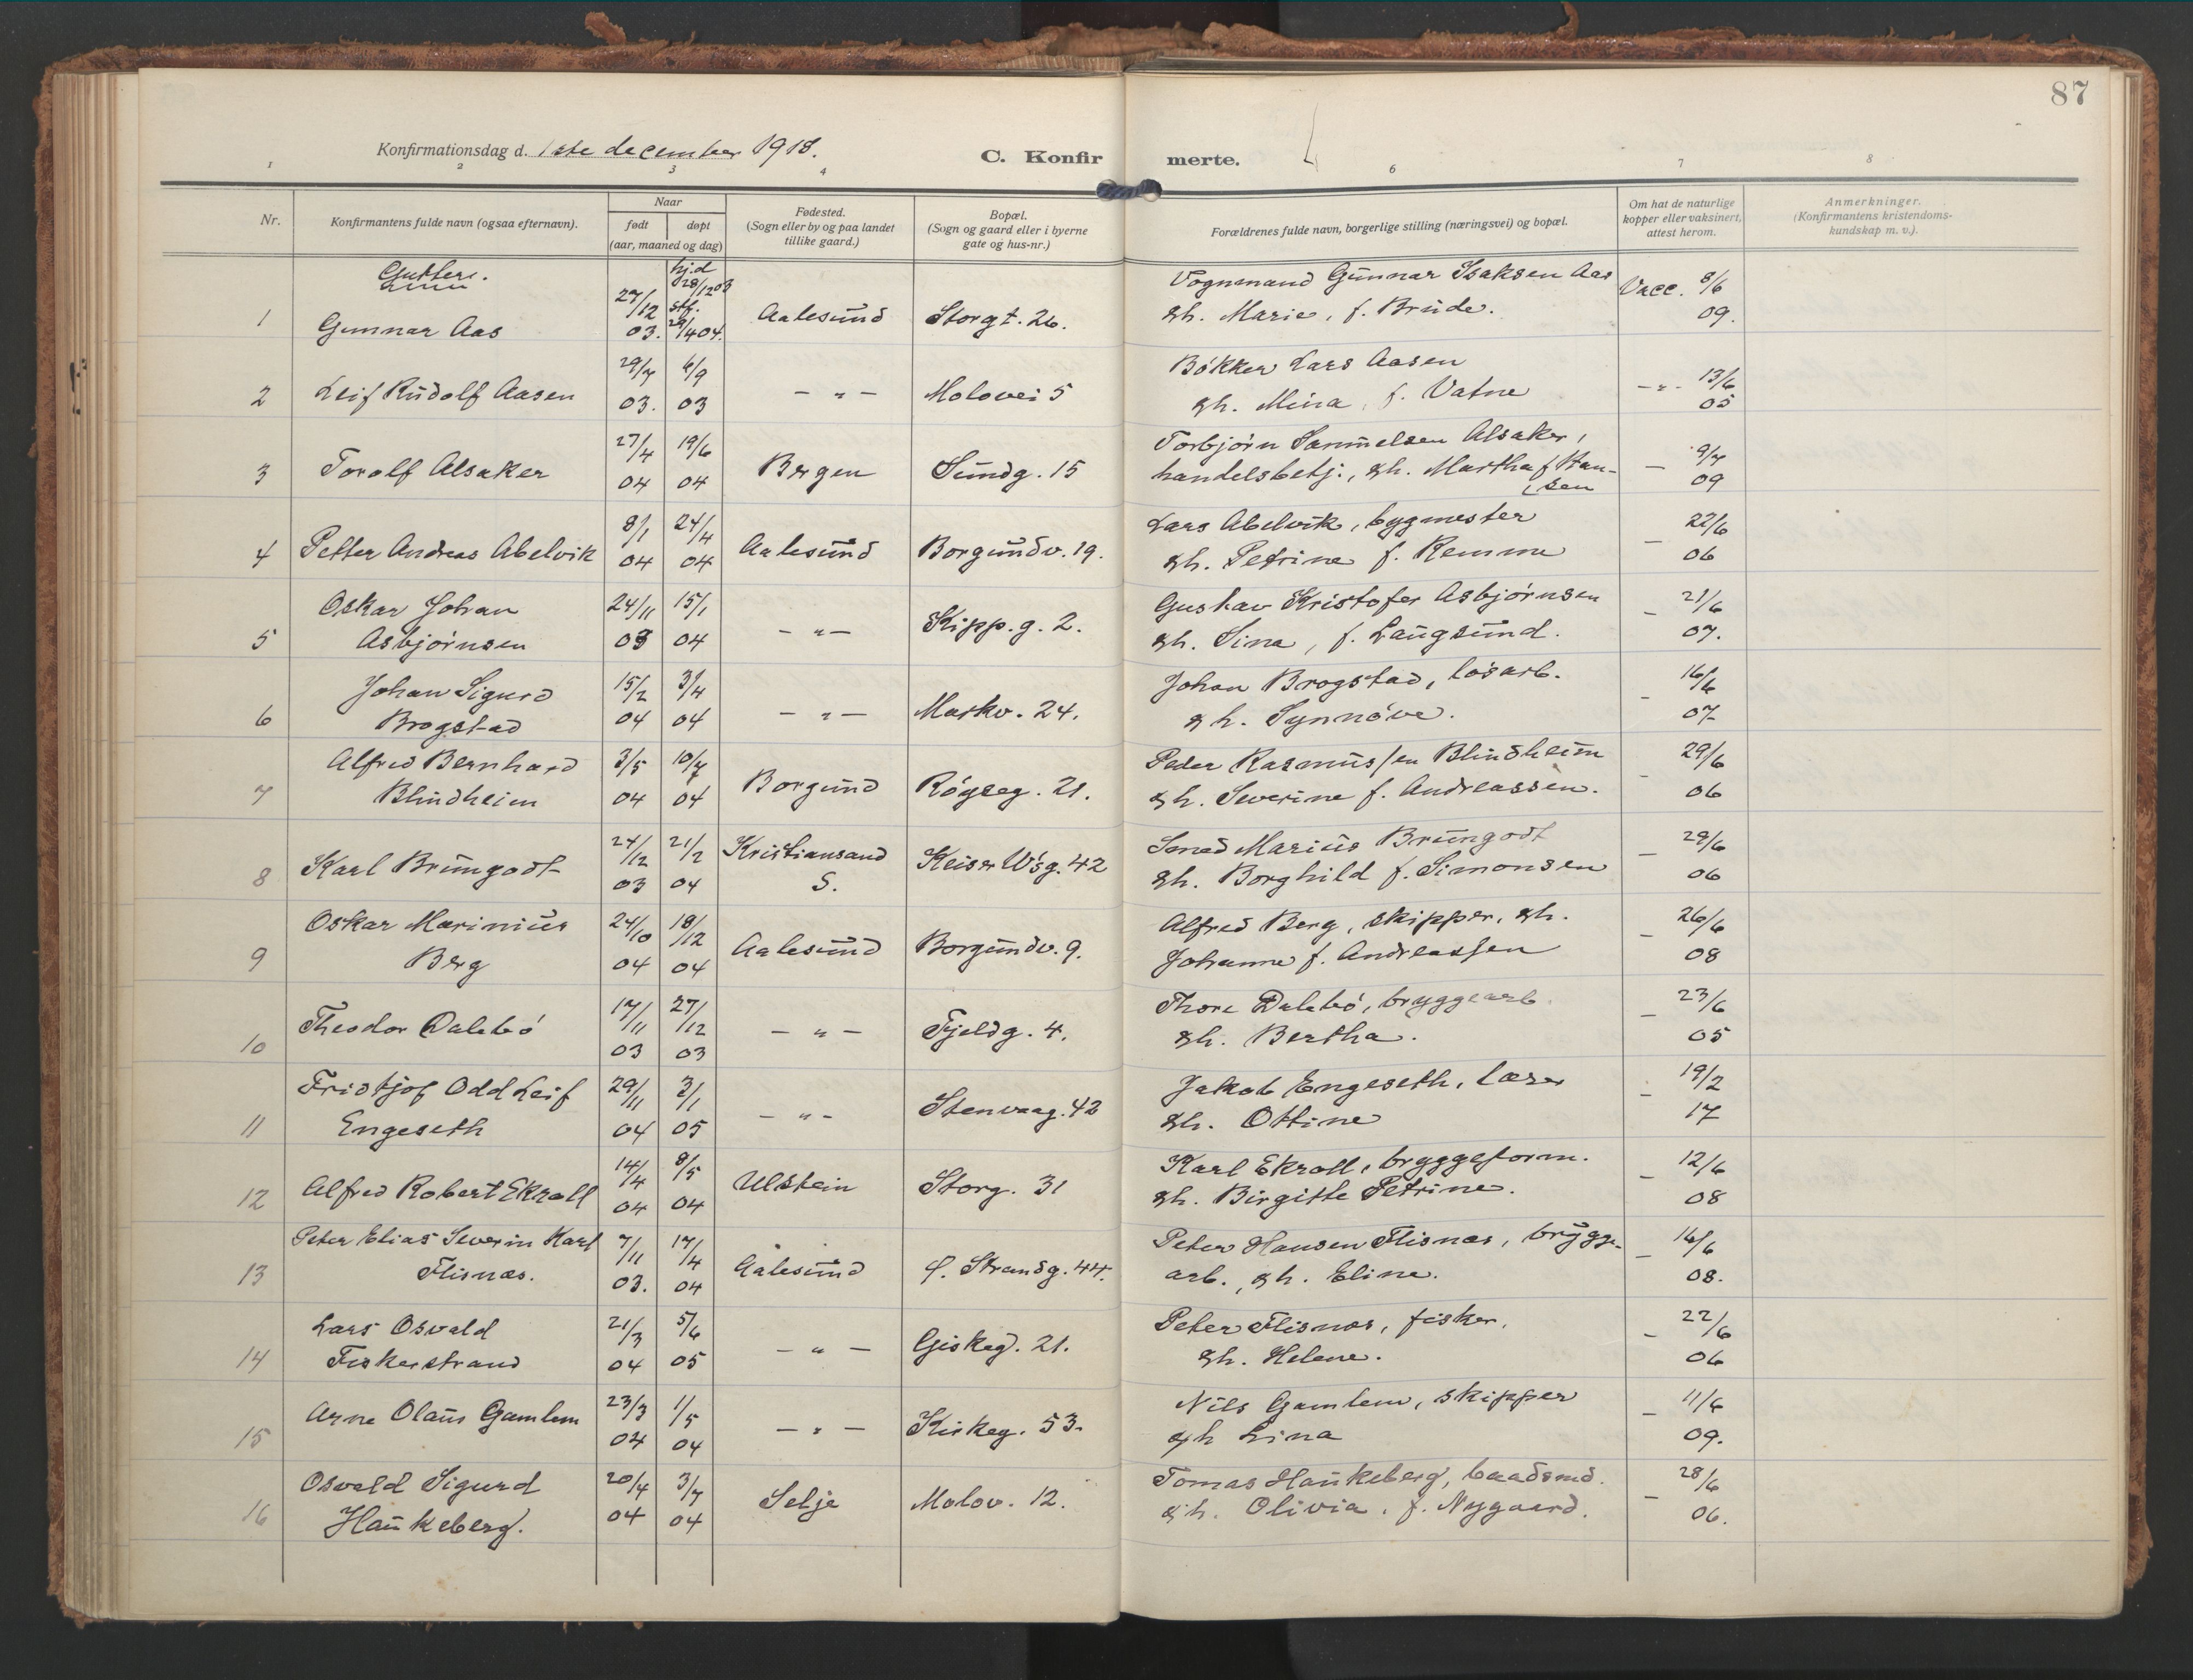 87
Konfirmationsdag d. 1ste december 1918.
C. Konfirmerte.
1 2 3 4 6 7 8
Nr.
Konfirmantens fulde navn (ogsaa efternavn).
Naar
født døpt
(aar, maaned og dag)
Fødested.
(Sogn eller by og paa landet
tillike gaard.)
Bopæl.
(Sogn og gaard eller i byerne
gate og hus-nr.)
Forældrenes fulde navn, borgerlige stilling (næringsvei) og bopæl.
Om hat de naturlige
kopper eller vaksinert,
attest herom.
Anmerkninger.
(Konfirmantens kristendoms-
kundskap m. v.).
Gutter.
1 Gunnar Aas 27/12 03. hj.d 28/12 03 stf. 24/4 04. Aalesund Storgt. 26.
Vognmand Gunnar Isaksen Aas
gh. Marie, f. Brude.
Vacc. 8/6 09.
2 Leif Rudolf Aasen 29/7 03. 6/9 03 — „ — Molovei 5
Bökker Lars Aasen
gh. Mina, f. Vatne
— „ - 13/6 05
3 Torolf Alsaker 27/4 04 19/6 04 Bergen Sundg. 15
Torbjörn Samuelsen Alsaker,
handelsbetj., gh. Martha f. Han-
sen
— 9/7 09
4 Petter Andreas Abelvik 8/1 04 24/4 04 Aalesund Borgundv. 19.
Lars Abelvik, bygmester
gh. Petrine f. Remme
— 22/6 06
5 Oskar Johan
Asbjörnsen 24/11 03 15/1 04 — „ — Kipp.g. 2.
Gustav Kristofer Asbjörnsen
gh. Sina, f. Langsund.
— 21/6 07.
6 Johan Sigurd
Brogstad 15/2 04 3/4 04 — „ — Markv. 24.
Johan Brogstad, lösarb.
gh. Synnöve.
— 16/6 07
7 Alfred Bernhard
Blindheim 3/5 04 10/7 04 Borgund Röyseg. 21.
Peder Rasmussen Blindheim
gh. Severine f. Andreassen.
— 29/6 06
8 Karl Brungodt 24/12 03 21/2 04 Kristiansand
S. Keiser W's g. 42
Smed Marius Brungodt
gh. Borghild f. Simonsen
— 29/6 06
9 Oskar Marinius
Berg 24/10 04 18/12 04 Aalesund Borgundv. 9.
Alfred Berg, skipper, gh.
Johanne f. Andreassen
— 26/6 08
10 Theodor Dalebö 17/11 03 27/12 03 — „ — Fjeldg. 4.
Thore Dalebö, bryggearb.
gh. Bertha.
— 23/6 05
11 Fridtjof Odd Leif
Engeseth 29/11 04 3/1 05 — „ - Stenvaag. 42
Jakob Engeseth, lærer
gh. Ottine
— 19/2 17
12 Alfred Robert Ekroll 14/4 04 8/5 04 Ulstein Storg. 31
Karl Ekroll, bryggeform.
gh. Birgitte Petrine.
— 12/6 08
13 Peter Elias Severin Karl
Flisnæs. 7/11 03. 17/4 04 Aalesund f. Strandg. 44.
Peter Hansen Flisnæs, brygge-
arb., gh. Eline.
— 16/6 08.
14 Lars Osvald
Fiskerstrand 21/3 04 5/6 05 — „ — Giskeg. 21.
Peter Flisnæs, fisker,
gh. Helene.
— 22/6 06
15 Arne Olaus Gamlem 23/3 04 1/5 04 — „ — Kirkeg. 53.
Nils Gamlem, skipper
gh Lina
— 11/6 09.
16 Osvald Sigurd
Haukeberg. 20/4 04 3/7 04 Selje Molov. 12.
Tomas Haukeberg, baadsmd.
gh. Olivia, f. Nygaard.
— 28/6 06.